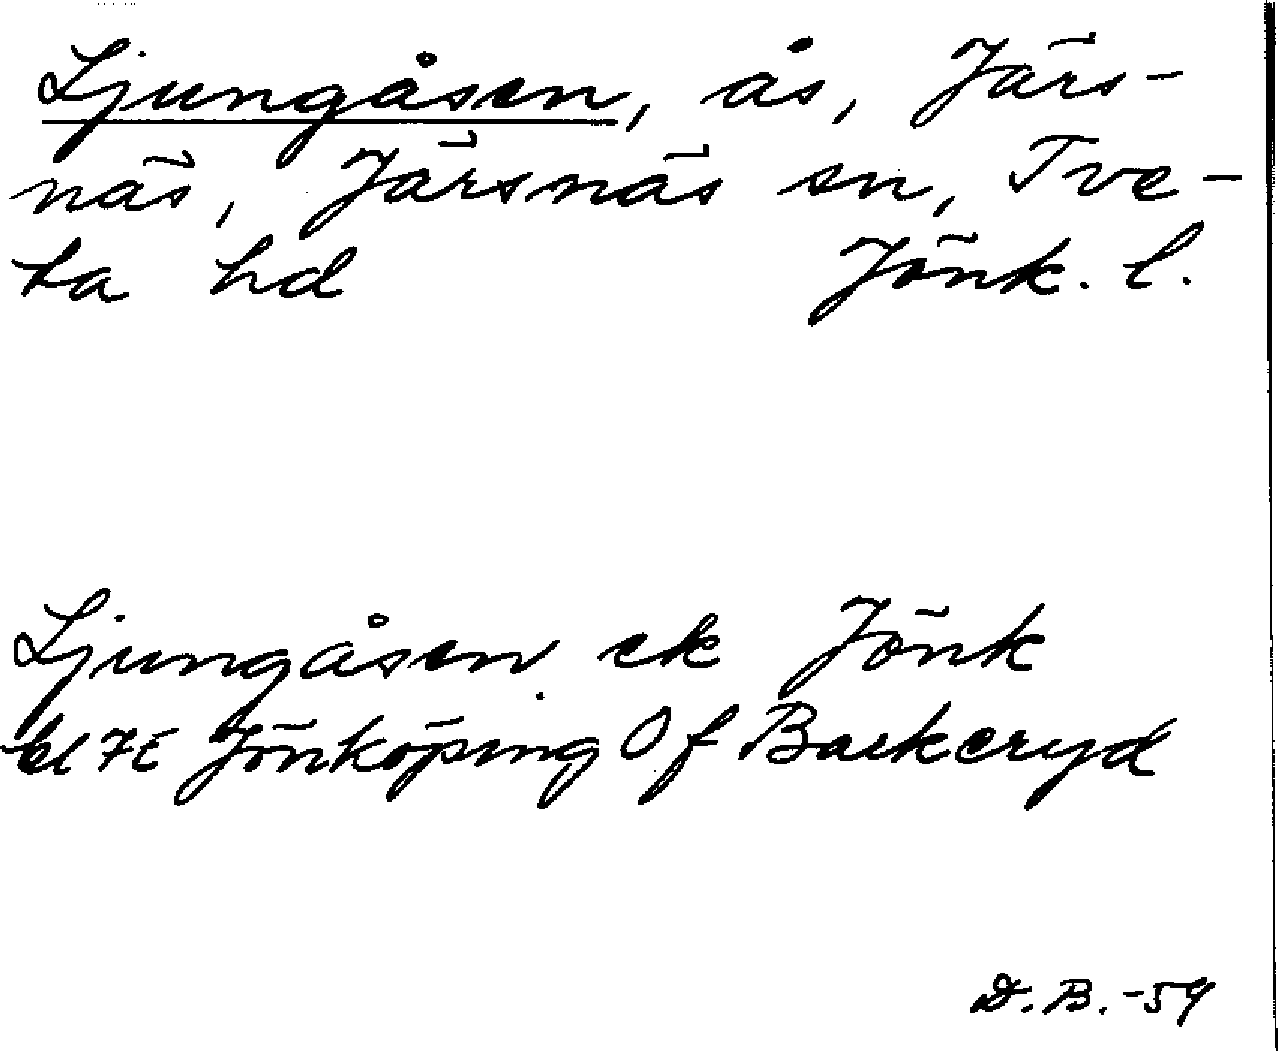 Ljungåsen, ås, Järs-
näs, Järsnäs sn, Tve-
ta hd Jönk. l.
Ljungåsen ek Jönk
bl 7E Jönköping Of Backeryd
D.B. -59